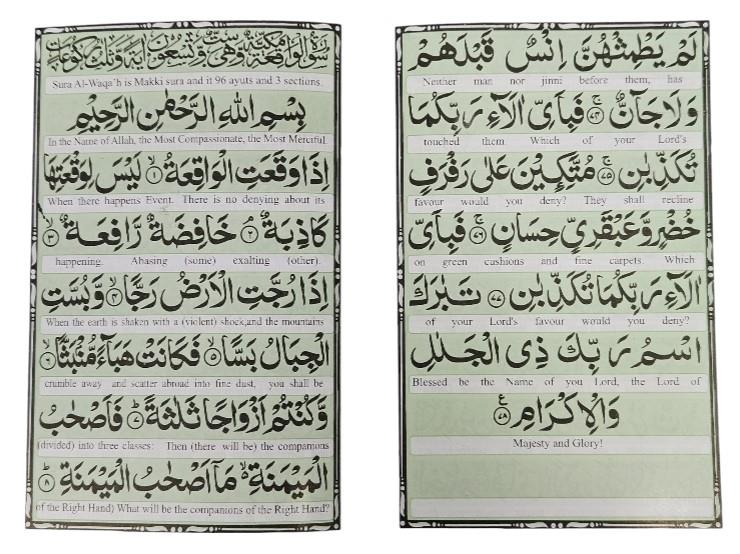 لَمْ يَطْمِثْهُنَّ اِنْسٌ قَبْلَهُمْ
Neither man nor jinni before them, has
وَلَا جَآنٌّ ۚ﴿۷۴﴾ فَبِاَيِّ اٰلَآءِ رَبِّكُمَا
touched them Which of your Lord's
تُكَذِّبٰنِ ۚ﴿۷۵﴾ مُتَّكِـِٕيْنَ عَلٰى رَفْرَفٍ
favour would you deny? They shall recline
خُضْرٍ وَّعَبْقَرِيٍّ حِسَانٍ ۚ﴿۷۶﴾ فَبِاَيِّ
on green cushions and fine carpets. Which
اٰلَآءِ رَبِّكُمَا تُكَذِّبٰنِ ﴿۷۷﴾ تَبٰرَكَ
of your Lord's favour would you deny?
اسْمُ رَبِّكَ ذِي الْجَلٰلِ
Blessed be the Name of you Lord, the Lord of
وَالْاِكْرَامِ ﴿۷۸﴾ ع
Majesty and Glory!
سُوْرَةُ الْوَاقِعَةِ مَكِّيَّةٌ وَّهِيَ سِتٌّ وَّتِسْعُوْنَ اٰيَةً وَّثَلٰثُ رُكُوْعَاتٍ
Sura Al-Waqa'h is Makki sura and it 96 ayuts and 3 sections.
بِسْمِ اللهِ الرَّحْمٰنِ الرَّحِيْمِ
In the Name of Allah, the Most Compassionate, the Most Merciful
اِذَا وَقَعَتِ الْوَاقِعَةُ ۙ﴿۱﴾ لَيْسَ لِوَقْعَتِهَا
When there happens Event. There is no denying about its
كَاذِبَةٌ ۘ﴿۲﴾ خَافِضَةٌ رَّافِعَةٌ ۙ﴿۳﴾
happening. Abasing (some) exalting (other).
اِذَا رُجَّتِ الْاَرْضُ رَجًّا ۙ﴿۴﴾ وَّبُسَّتِ
When the earth is shaken with a (violent) shock,and the mountains
الْجِبَالُ بَسًّا ۙ﴿۵﴾ فَكَانَتْ هَبَآءً مُّنْۢبَثًّا ۙ﴿۶﴾
crumble away and scatter abroad into fine dust, you shall be
وَّكُنْتُمْ اَزْوَاجًا ثَلٰثَةً ؕ﴿۷﴾ فَاَصْحٰبُ
(divided) into three classes: Then (there will be) the companions
الْمَيْمَنَةِ ۙ مَاۤ اَصْحٰبُ الْمَيْمَنَةِ ؕ﴿۸﴾
of the Right Hand) What will be the companions of the Right Hand?